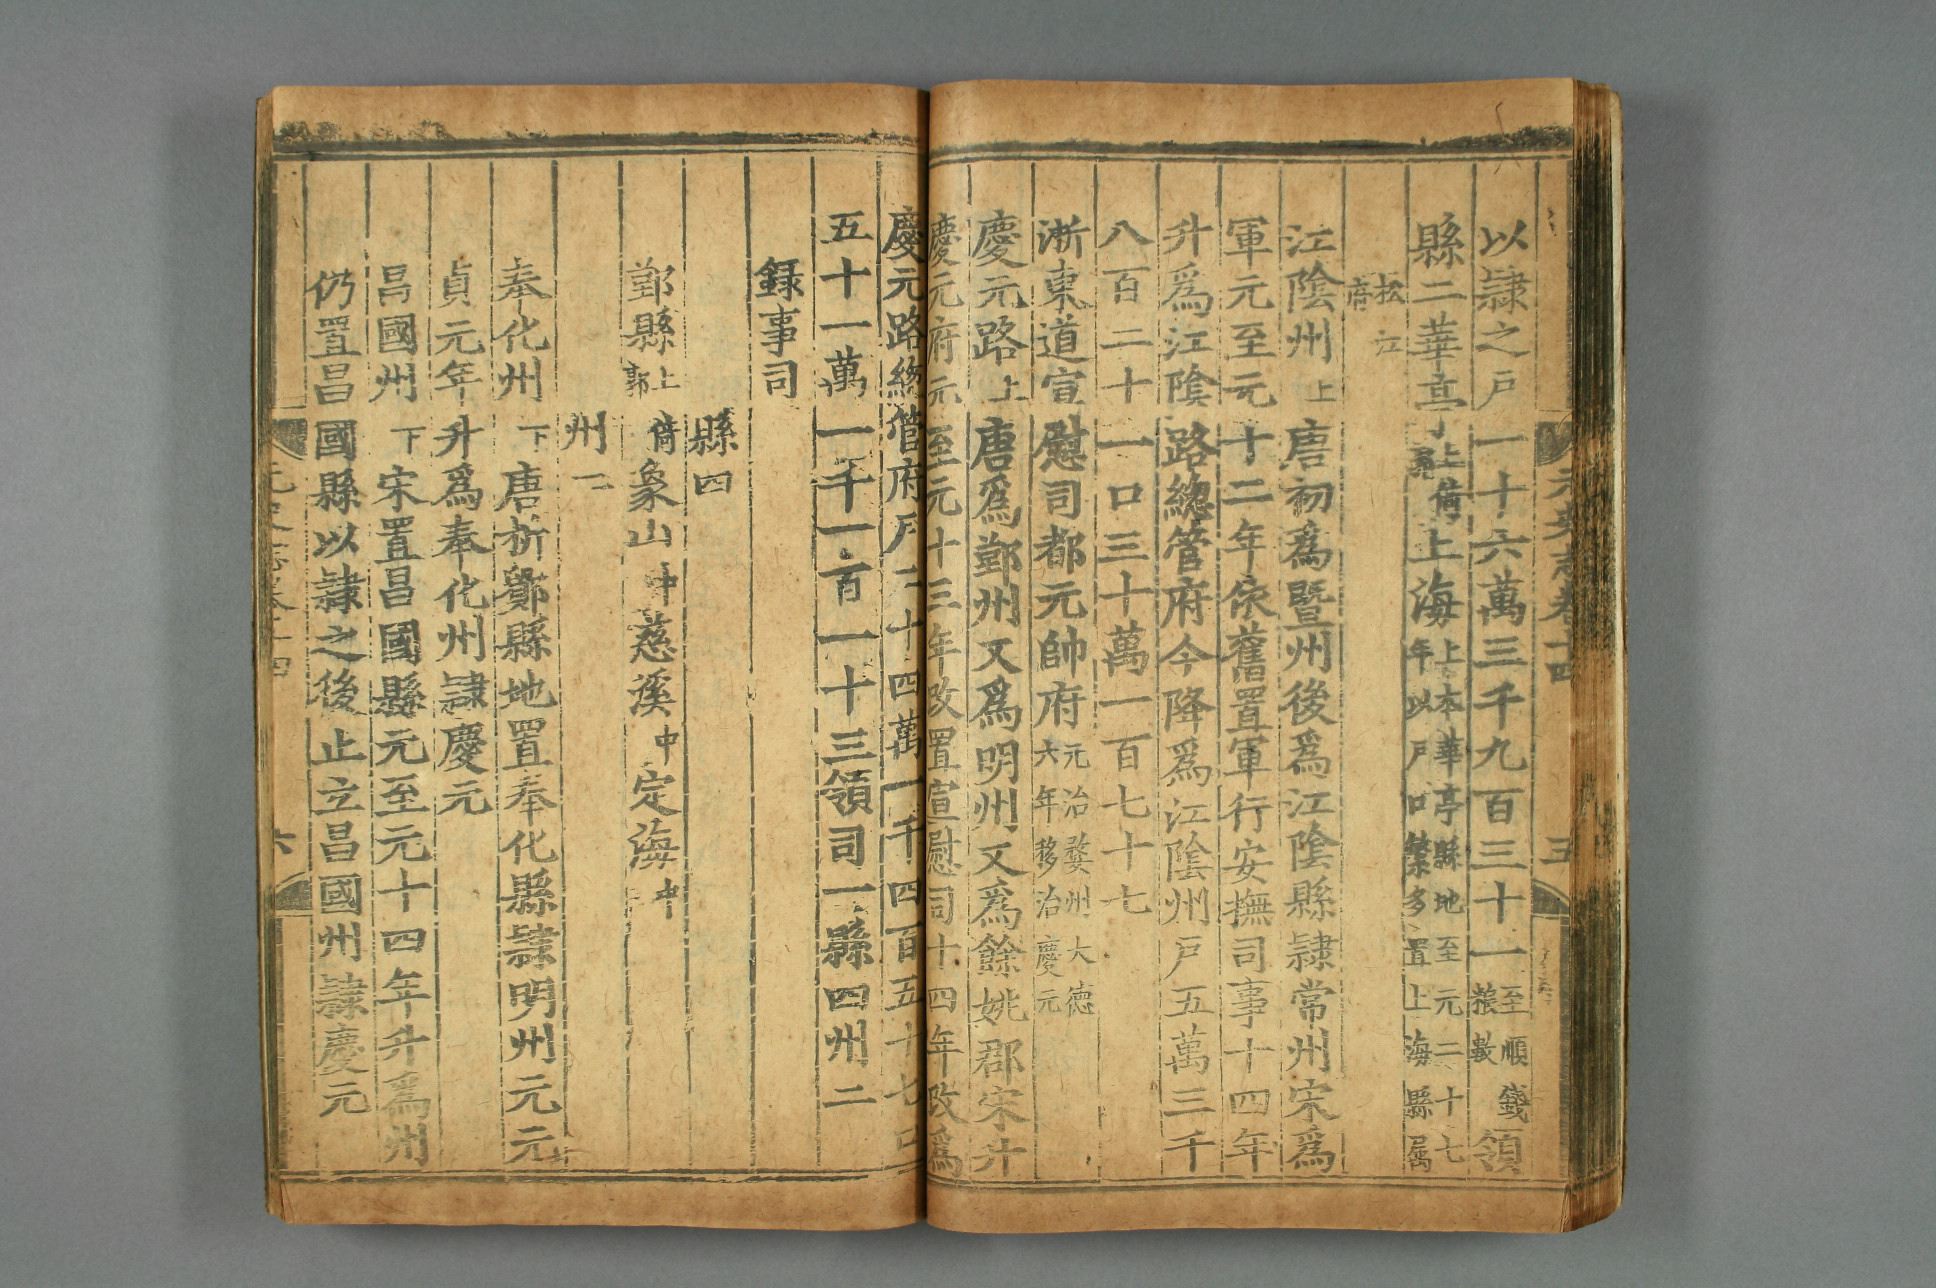 元史志卷十四
五
以隸之戶一十六萬三千九百三十一至順錢粮數領
縣二華亭上倚郭上海上本華亭縣地至元二十七年以戶口繁多置上海縣屬
松江府
江陰州上唐初爲暨州後爲江陰縣隸常州宋爲
軍元至元十二年依舊置軍行安撫司事十四年
升爲江陰路總管府今降爲江陰州戶五萬三千
八百二十一口三十萬一百七十七
浙東道宣慰司都元帥府元治婺州大德六年移治慶元
慶元路上唐爲鄞州又爲明州又爲餘姚郡宋升
慶元府元至元十三年改置宣慰司十四年改爲
慶元路總管府戶二十四萬一千四百五十七口
五十一萬一千一百一十三領司一縣四州二
錄事司
縣四
鄞縣上倚郭象山中慈溪中定海中
州二
奉化州下唐析鄮縣地置奉化縣隸明州元元
貞元年升爲奉化州隸慶元
昌國州下宋置昌國縣元至元十四年升爲州
仍置昌國縣以隸之後止立昌國州隸慶元
元史志卷十四
六